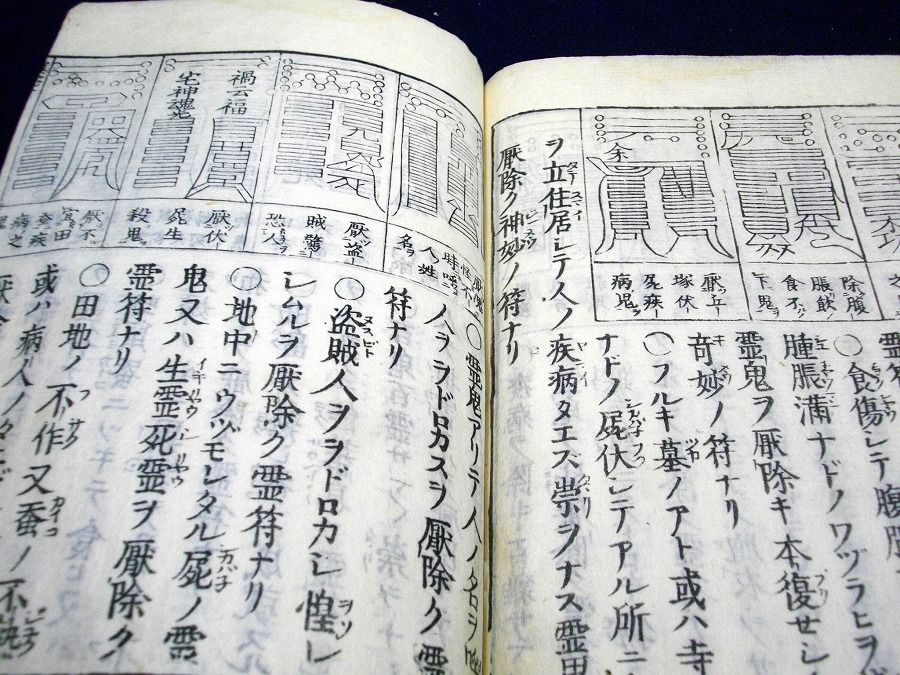 除腹
脹飲ノ
食不ル
下鬼ヲ
厭丘
塚伏
屍疾
病鬼ヲ
余
霊符
○食傷シテ腹脹
腫脹満ナドノワヅラヒヲ
霊鬼ヲ厭除キ本復せし
奇妙ノ符ナリ
○フルキ墓ノアト或ハ寺
ナドノ屍伏シテアル所ニ
ヲ立住居レテ人ノ疾病タエズ崇ヲナス霊鬼
厭除ク神妙ノ符ナリ
時呼
人ノ姓
名ヲ
厭盗
賊驚
恐人
禍去福
宅神魂鬼
厭伏
屍生
殺鬼ヲ
厭不
宜田
蚕疾
病之
○霊鬼アリテ人ノ名ヲ
ノヲヲドロカスヲ厭除ク霊
符ナリ
○盗賊人ヲヲドロカレ惶レ
レムルヲ厭除ク霊符ナリ
○地中ニウヅモレタル屍ノ霊
鬼又ハ生霊死霊ヲ厭除ク
霊符ナリ
○田地ノ不作又蚕ノ不熟
或ハ病人ノ